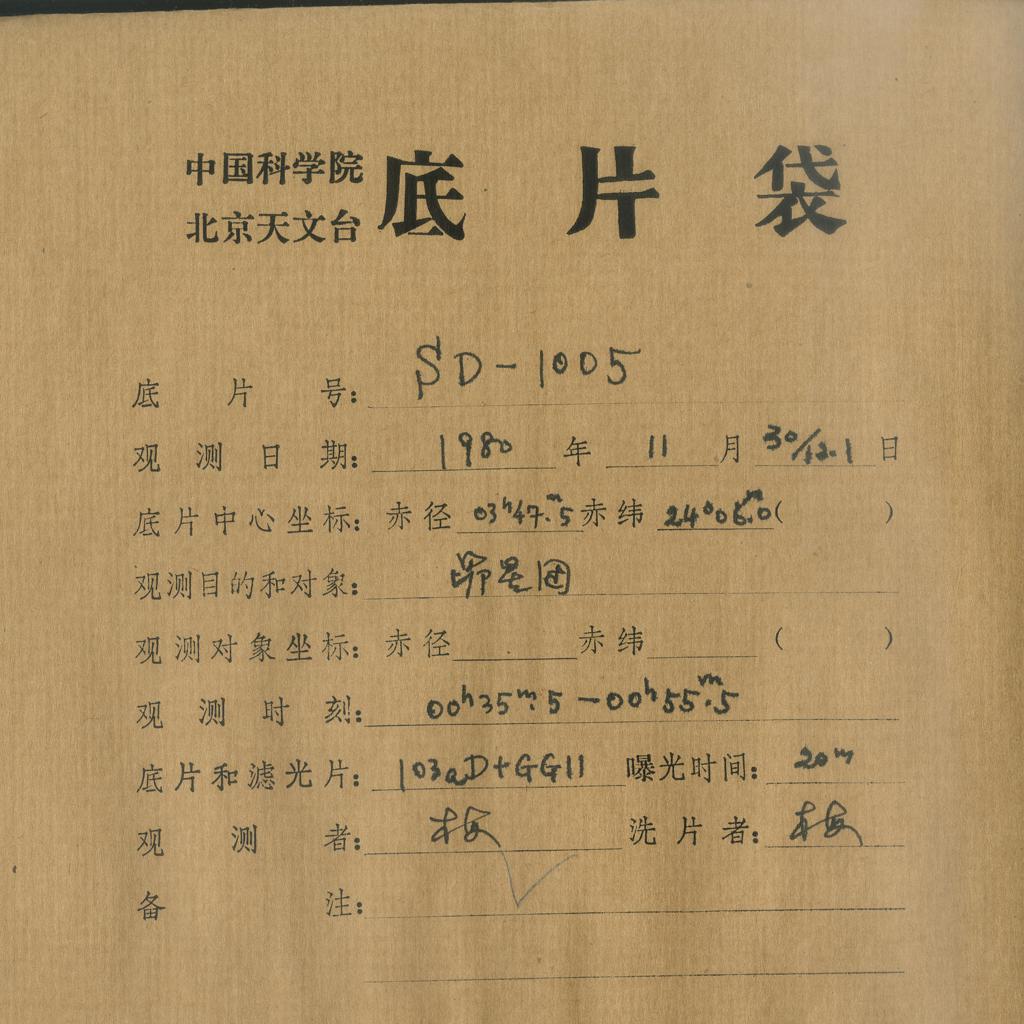 中国科学院
北京天文台
底片袋
底片号： SD-1005
观测日期： 1980 年 11 月 30/12.1 日
底片中心坐标：赤径 03ʰ47ᵐ.5 赤纬 24°06ᵐ.0 ( )
观测目的和对象： 昴星团
观测对象坐标：赤径 赤纬 ( )
观测时刻： 00ʰ35ᵐ.5－00ʰ55ᵐ.5
底片和滤光片： 103aD+GG11 曝光时间： 20ᵐ
观测者： 梅 洗片者： 梅
备注：